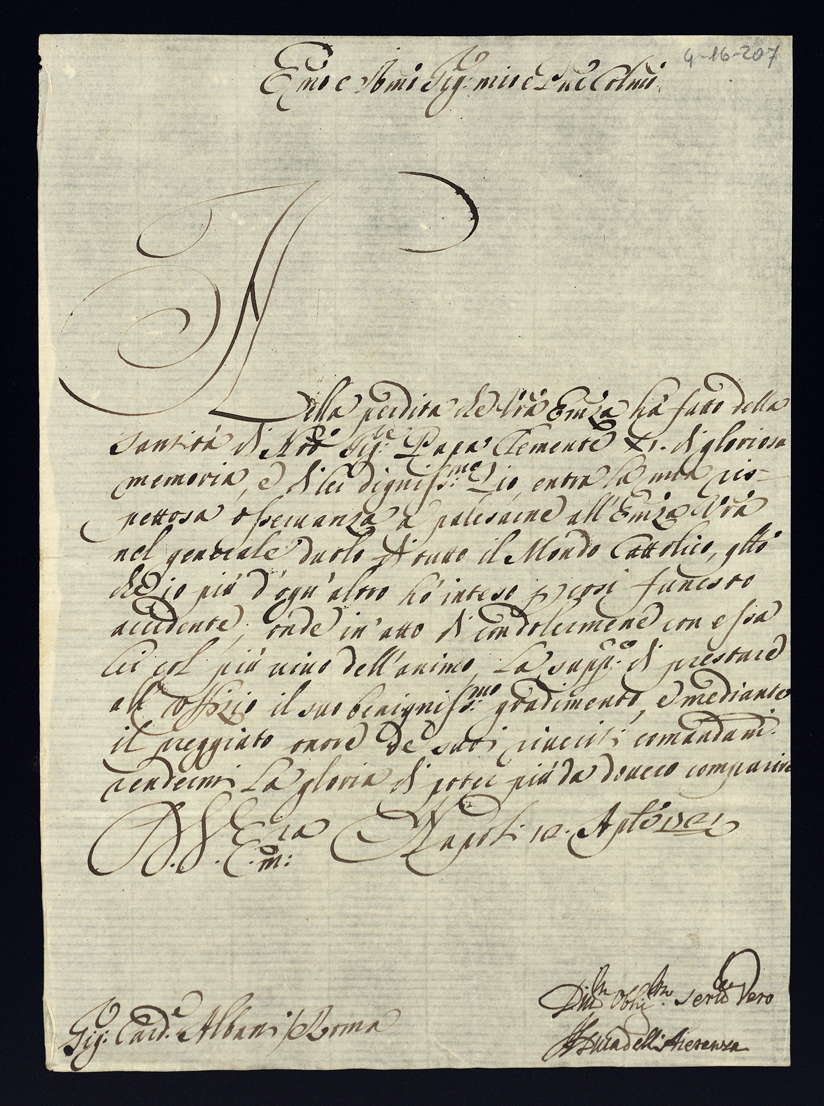 4-16-207
Em̃o e Rm̃o Sig.r mio e P̃ne Colm̃o
Nella perdita che Vr̃a Em̃za hà fatto della
Santità di Nrõ Sig.re Papa Clemente XI. di gloriosa
memoria, e di lei digniss.mo Zio, entra la mia ris-
pettosa osservanza à palesarne all'Em̃za Vr̃a
nel generale duolo di tutto il Mondo Cattolico,
che io più d'ogn'altro hò inteso p così funesto
accidente; onde in atto di condolermene con essa
lei col più vivo dell'animo, La supp.co di prestare
all'Offizio il suo benigniss.mo gradimento, e mediante
il preggiato onore de suoi riveriti comandam.ti
rendermi La gloria di poter più da dovero comparire
D. V. Em.za Napoli 1721
Sig.r Card.le Albani / Roma
Div.mo Obblig.mo Ser.re Vero
Il Duca dell'Acerenza